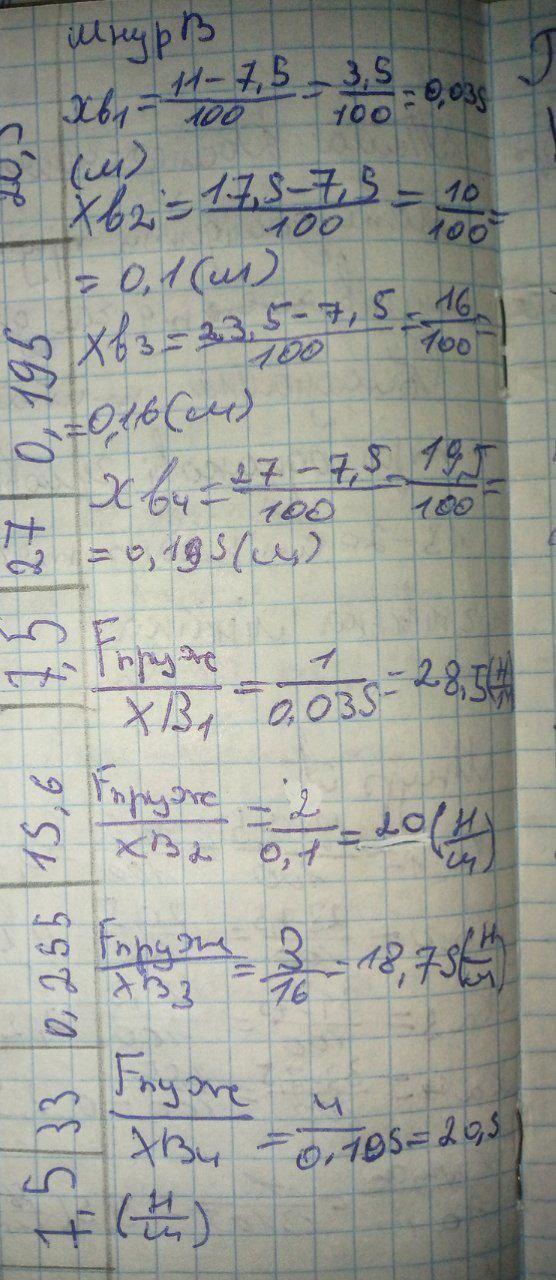 Шнур В
xв₁ = (11 − 7,5)/100 = 3,5/100 = 0,035
(м)
xв₂ = (17,5 − 7,5)/100 = 10/100 =
= 0,1 (м)
xв₃ = (23,5 − 7,5)/100 = 16/100 =
= 0,16 (м)
xв₄ = (27 − 7,5)/100 = 19,5/100 =
= 0,195 (м)
Fпруж/XВ₁ = 1/0,035 = 28,5 (Н/м)
Fпруж/XВ₂ = 2/0,1 = 20 (Н/м)
Fпруж/XВ₃ = 3/16 = 18,75 (Н/м)
Fпуж/XВ₄ = 4/0,195 = 20,5
(Н/м)
7,5 33 0,255 15,6
7,5 27 0,195 20,5